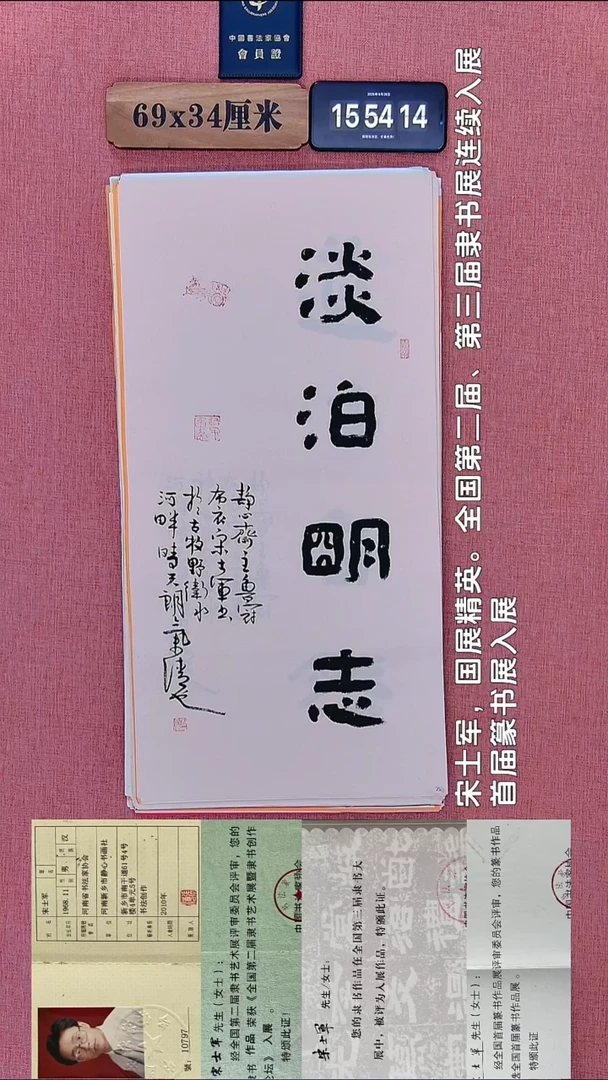 中國書法家協會
會員證
69x34厘米
15 54 14
淡泊明志
静心斋主豊冠
布衣宋士军书
於古牧野衛水
河畔時天朗氣清也
宋士军，国展精英。全国第二届、第三届隶书展连续入展
首届篆书展入展
宋士军
男
汉
1968.11
河南省书法家协会
河南新乡市静心书画社
新乡市南干道61号4号
楼3单元5号
书法创作
2010年
號: 10797
宋士军 先生（女士）：
经全国第二届隶书艺术展评审委员会评审，您的
隶书 作品 荣获《全国第二届隶书艺术展暨隶书创作
论坛》 入展 。
特颁此证！
宋士军 先生/女士：
您的隶书作品在全国第三届隶书大
展中，被评为入展作品，特颁此证。
士军 先生（女士）：
经全国首届篆书作品展评审委员会评审，您的篆书作品
选全国首届篆书作品展。
特颁此证